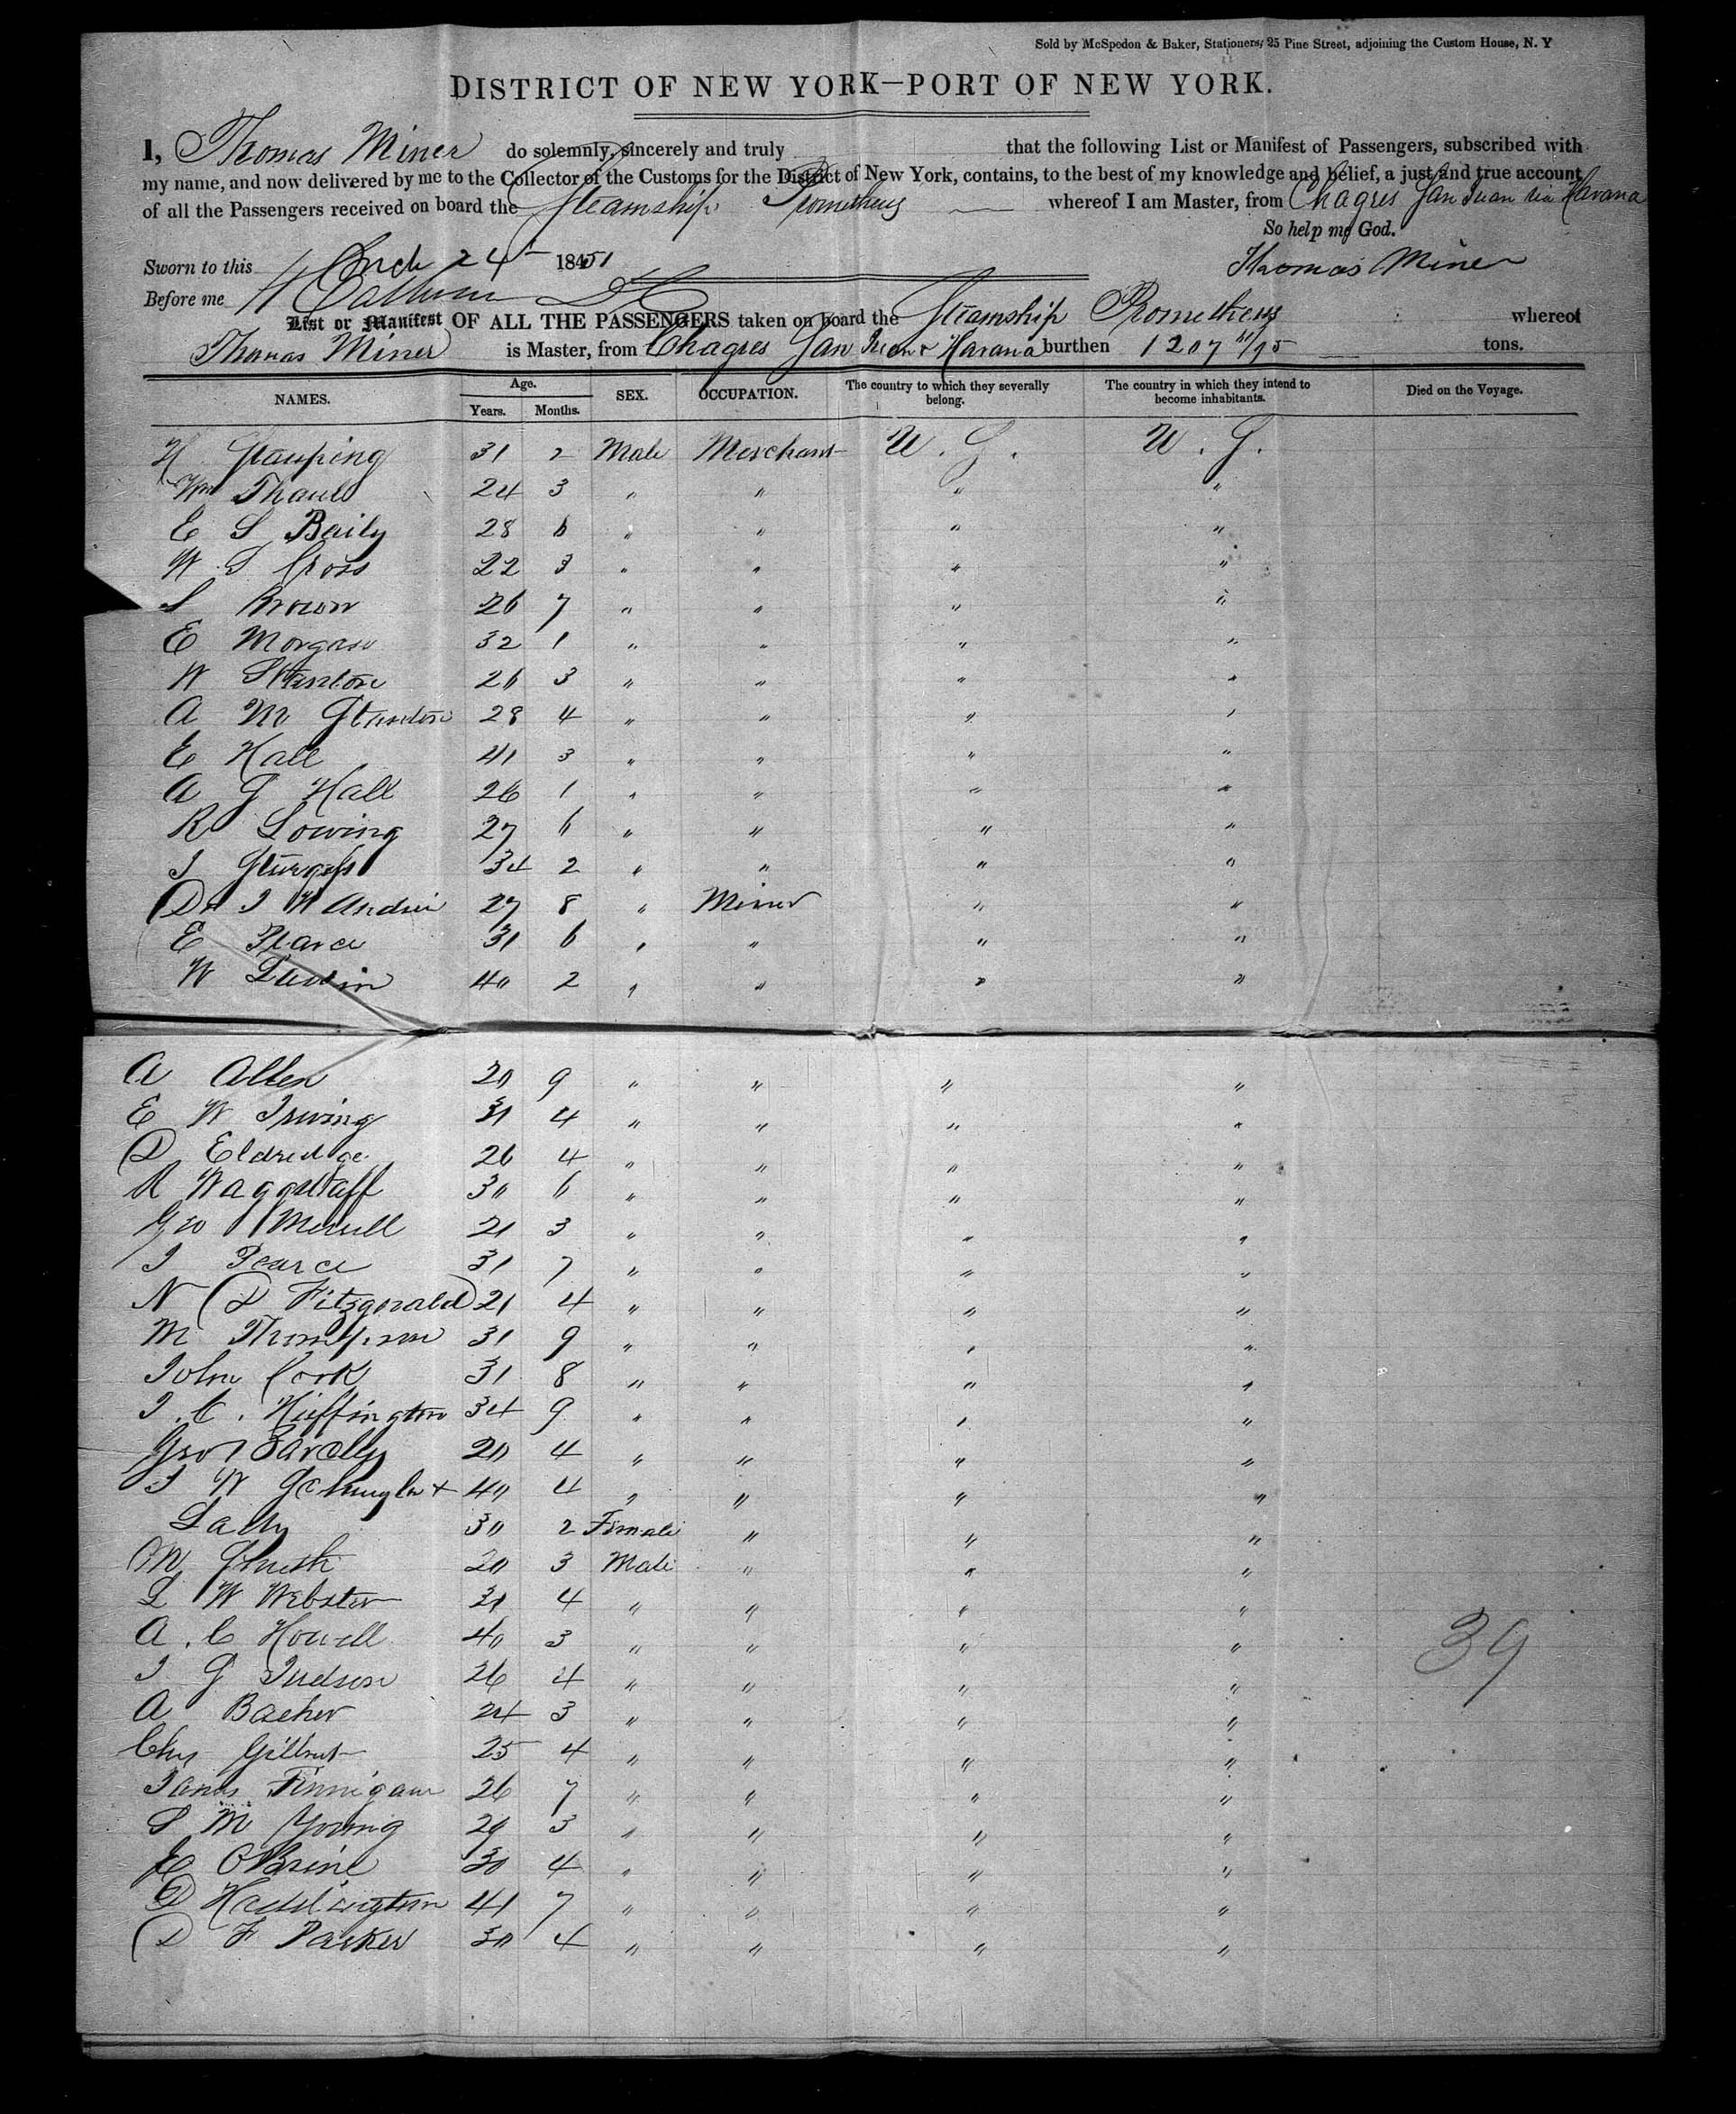 Sold by McSpedon & Baker, Stationers, 25 Pine Street, adjoining the Custom House, N. Y
DISTRICT OF NEW YORK—PORT OF NEW YORK.
I, Thomas Miner do solemnly, sincerely and truly that the following List or Manifest of Passengers, subscribed with
my name, and now delivered by me to the Collector of the Customs for the District of New York, contains, to the best of my knowledge and belief, a just and true account
of all the Passengers received on board the Steamship Prometheus whereof I am Master, from Chagres San Juan via Havana
So help me God.
Sworn to this 24 1851 Thomas Miner
Before me
List or Manifest OF ALL THE PASSENGERS taken on board the Steamship Prometheus whereof
Thomas Miner is Master, from Chagres San Juan & Havana burthen 1207 /95 tons.
NAMES. Age. Years. Months. SEX. OCCUPATION. The country to which they severally belong. The country in which they intend to become inhabitants. Died on the Voyage.
H 31 2 Male Merchant U. S. U. S.
Wm 24 3 " " " "
E S Baily 28 6 " " " "
W S Cross 22 3 " " " "
S Brown 26 7 " " " "
E Morgan 32 1 " " " "
W Stanton 26 3 " " " "
A M Stanton 28 4 " " " "
E Hall 41 3 " " " "
A G Hall 26 1 " " " "
R Lowing 27 6 " " " "
J Sturgess 34 2 " " " "
Dr J W 27 8 " Miner " "
E Pearce 31 6 " " " "
W 40 2 " " " "
A Allen 20 9 " " " "
E W Irving 31 4 " " " "
D Eldredge 26 4 " " " "
R Waggstaff 30 6 " " " "
Geo Merrill 21 3 " " " "
J Pearce 31 7 " " " "
N D Fitzgerald 21 4 " " " "
M Thompson 31 9 " " " "
John Cook 31 8 " " " "
J. C. Huffington 34 9 " " " "
Geo 20 4 " " " "
J W & 40 4 " " " "
Lady 30 2 Female " " "
M 20 3 Male " " "
L W Webster 31 4 " " " "
A. C Howell 40 3 " " " "
J G Judson 26 4 " " " "
A Bacher 24 3 " " " "
Chs Gilbert 25 4 " " " "
James Finnigan 26 7 " " " "
S M Young 29 3 " " " "
O'Brine 30 4 " " " "
D 41 7 " " " "
D F Parker 30 4 " " " "
39